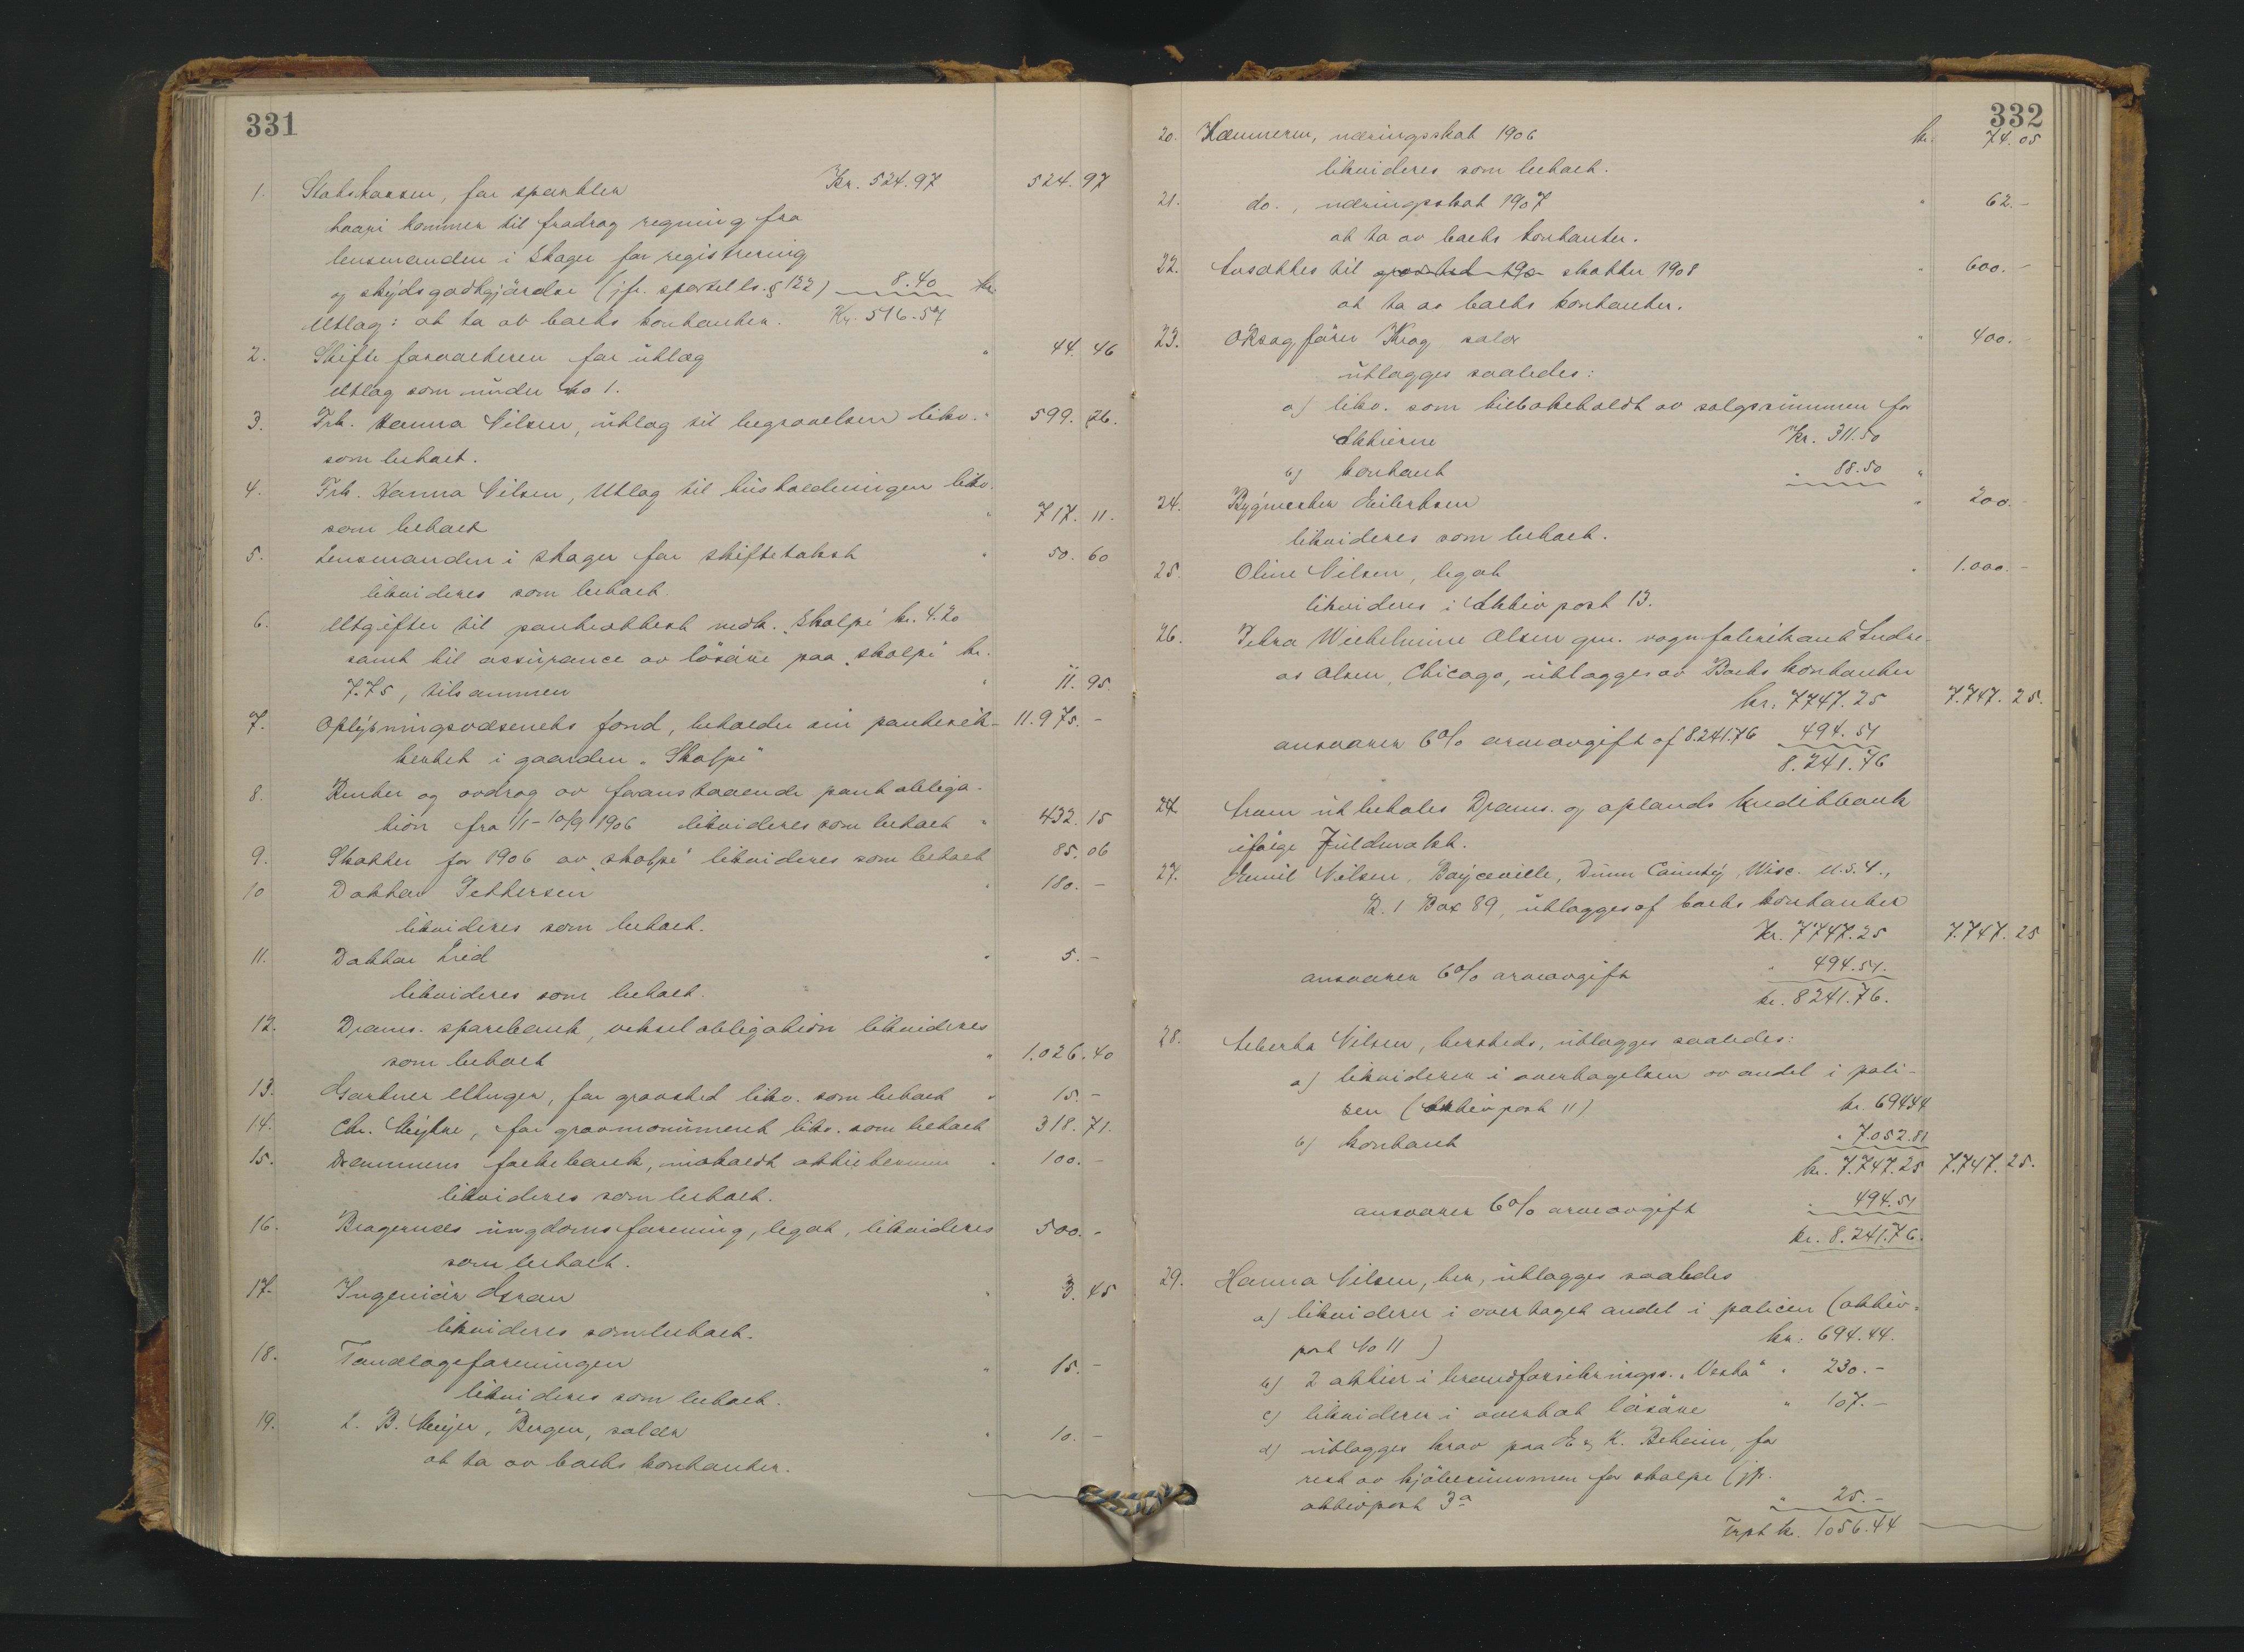 331
1. Statskassen, for sportler Kr. 524.97 524.97
herpi kommer til fradrag regning fra
lensmanden i Skoger for registrering
og skydsgodtgjørelse (jfr. sportel ls. § 122) 8.40 kr.
Utlag: at ta av boets kontanter. Kr. 516.57
2. Skifteforvalteren for utlæg " 44.46
Utlag som under No 1.
3. Frk. Hanna Nilsen, utlag til begravelsen likv. " 599.26.
som betalt.
4. Frk. Hanna Nilsen, Utlag til husholdningen likv.
som betalt " 717.11.
5. Lensmanden i Skoger for skiftetakst " 50.60
likvideres som betalt.
6. Utgifter til panteattest vedk. "Skalpe" kr. 4.20
samt til assurance av løsøre paa "Skalpe" kr.
7.75, tilsammen " 11.95.
7. Oplysningsvæsenets fond, beholder sin panteret- 11.975.-
i gaarden "Skalpe"
8. Renter og avdrag av foranstaaende pantobliga-
tion fra 1/1-10/9 1906 likvideres som betalt " 432.15
9. Skatter for 1906 av "Skalpe" likvideres som betalt 85.06
10 Doktor Pettersen " 180.-
likvideres som betalt.
11. Doktor Lied " 5.-
likvideres som betalt.
12. Drams. sparebank, vekselobligation likvideres
som betalt " 1.026.40
13. Gartner Ellinger, for gravsted likv. som betalt " 15.-
14. Chr. Myhre, for gravmonument likv. som betalt 318.71.
15. Drammens folkebank, innkaldt aktietermin " 100.-
likvideres som betalt.
16. Bragernæs ungdomsforening, legat, likvideres 500.-
som betalt.
17. Ingeniør Gran " 3.45
likvideres som betalt.
18. Tandlægeforeningen " 15.-
likvideres som betalt.
19. L. B. Meyer, Bergen, saldo " 10.-
at ta av boets kontanter.
332
20. Kæmneren, næringsskat 1906 kr. 74.05
likvideres som betalt.
21. do., næringsskat 1907 " 62.-
at ta av boets kontanter.
22. Avsættes til gravsted 190 skatter 1908 " 600.-
at ta av boets kontanter.
23. Oksagfører Krog salær " 400.
utlægges saaledes:
a) likv. som tilbakeholdt av salgssummen for
Aktierne Kr. 311.50
b) kontant " 88.50 "
24. Bygmester Eilertsen " 200.-
likvideres som betalt.
25. Oline Nilsen, legat " 1.000.-
likvideres i Aktiv post 13.
26. Petra Wilhelmine Olsen gm. vognfabrikant Andre-
as Olsen, Chicago, utlægges av Boets kontanter
kr. 7747.25 7.747.25.
ansvarer 6% arveavgift af 8.241.76 494.51
8.241.76
27. Arven utbetales Drams. og oplands kreditbank
ifølge Fuldmakt.
27. Emil Nilsen, Boyceville, Dunn County, Wisc. U.S.A.,
R. 1 Box 89, utlægges af boets kontanter
Kr. 7747.25 7.747.25
ansvarer 6% arveavgift " 494.51.
kr. 8241.76.
28. Alberta Nilsen, hersteds, utlægges saaledes:
a) likviderer i overtagelsen av andel i poli-
sen (Aktiv post 11) kr. 694.44
b) kontant " 7.052.81
kr. 7.747.25 7.747.25.
ansvarer 6% arveavgift " 494.51
kr. 8.241.76.
29. Hanna Nilsen, her, utlægges saaledes
a) likviderer i overtaget andel i policen (aktiv-
post No 11) kr. 694.44.
b) 2 aktier i brandforsikringss. "Vesta" " 230.-
c) likviderer i overtat løsøre " 107.-
d) utlægges krav paa E & K. Beheim, for
rest av kjøbesummen for Skalpe (jfr.
aktivpost 3a " 25.-
Trpt kr. 1056.44